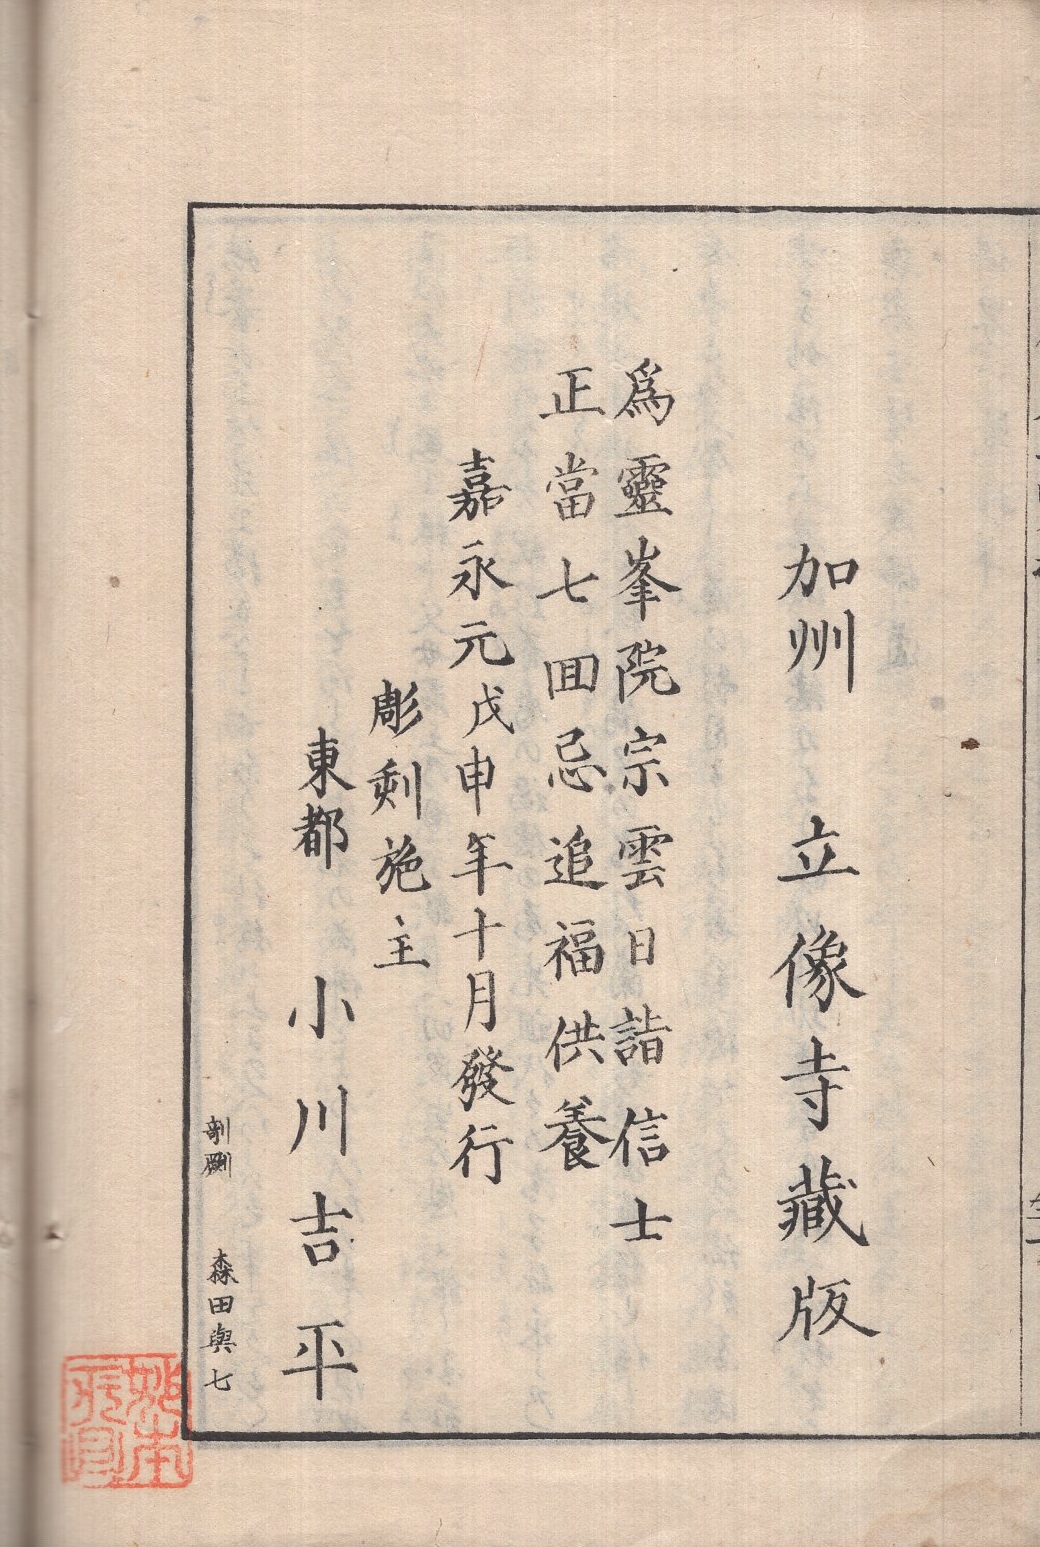 加州 立像寺藏版
爲靈峯院宗雲日詣信士
正當七囬忌追福供養
嘉永元戊申年十月發行
彫刻施主
東都 小川吉平
剞劂 森田與七